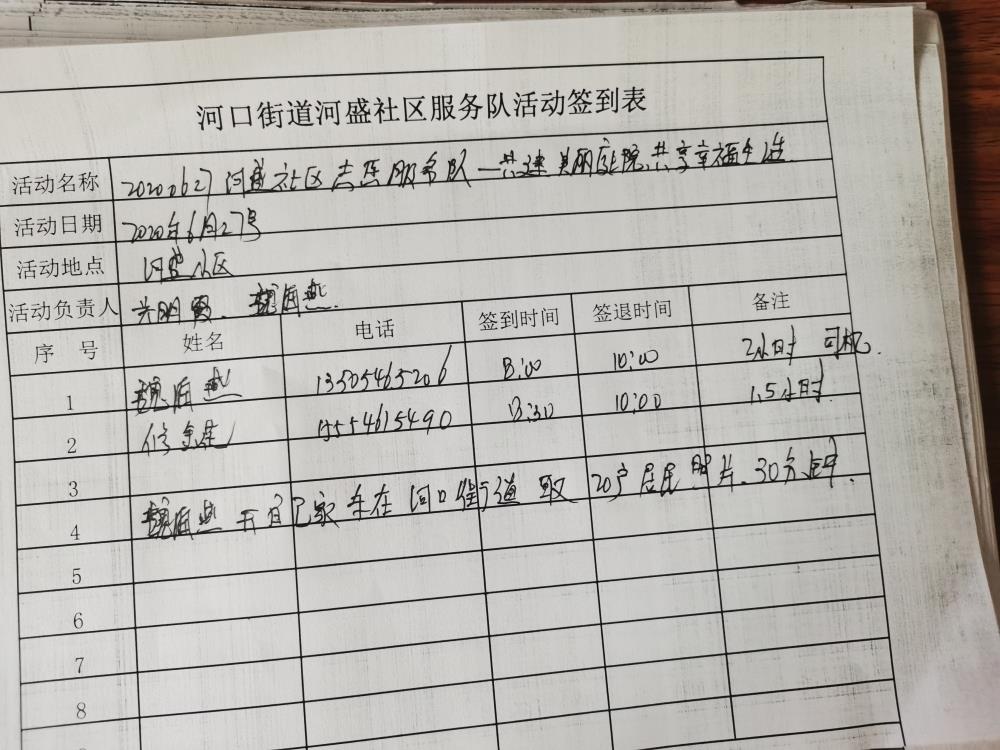 河口街道河盛社区服务队活动签到表
活动名称 20200627河盛社区志愿服务队—共建美丽庭院,共享幸福生活
活动日期 2020年6月27号
活动地点 河盛社区
活动负责人
序号 姓名 电话 签到时间 签退时间 备注
1 13505465206 8:00 10:00 2小时 司机.
2 15554615490 8:30 10:00 1.5小时.
3
4 开自己家车在河口街道取20户居民照片.30分钟.
5
6
7
8